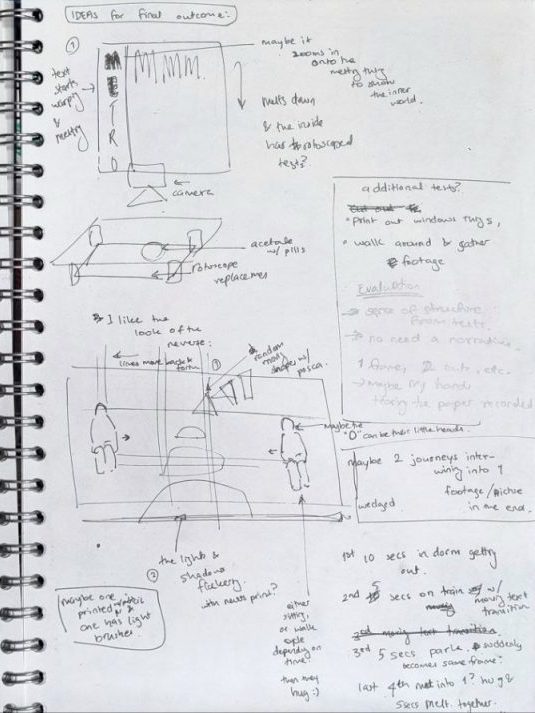 IDEAS for final outcome:
①
maybe it
zooms in
onto the
melty thing
to show
the inner
world.
text
starts
warping
&
melting
M M M M.
T
R
O
melts down
& the inside
has rotoscoped
texts?
camera
acetate
w/ pills
rotoscope
replacemen
additional tests?
• Print out windows rugs,
• walk around & gather
footage
Evaluation
→ sense of structure
from tests.
→ no need a narrative
1 frame, 2 cuts, etc.
→ maybe my hand
the paper recorded
I like the
look of the
reverse:
lines move back &
forth
③
random
moving
shapes w/
posca.
maybe the
"O" can be their little heads.
maybe 2 journeys inter-
wining into 1
footage/
in the end.
wedged
②
the lights &
shadows
flickery.
with news print?
maybe one
printed
& one has light
brushes
either
sitting,
or walk
cycle
depending on
time?
then they
hug :)
1st 10 secs in dorm getting
out.
2nd 5 secs on train w/
moving text
transition
3rd moving text transition
3rd 5 secs park. suddenly
becomes same frame?
last 4th melt into 1? hug &
5secs melt together.